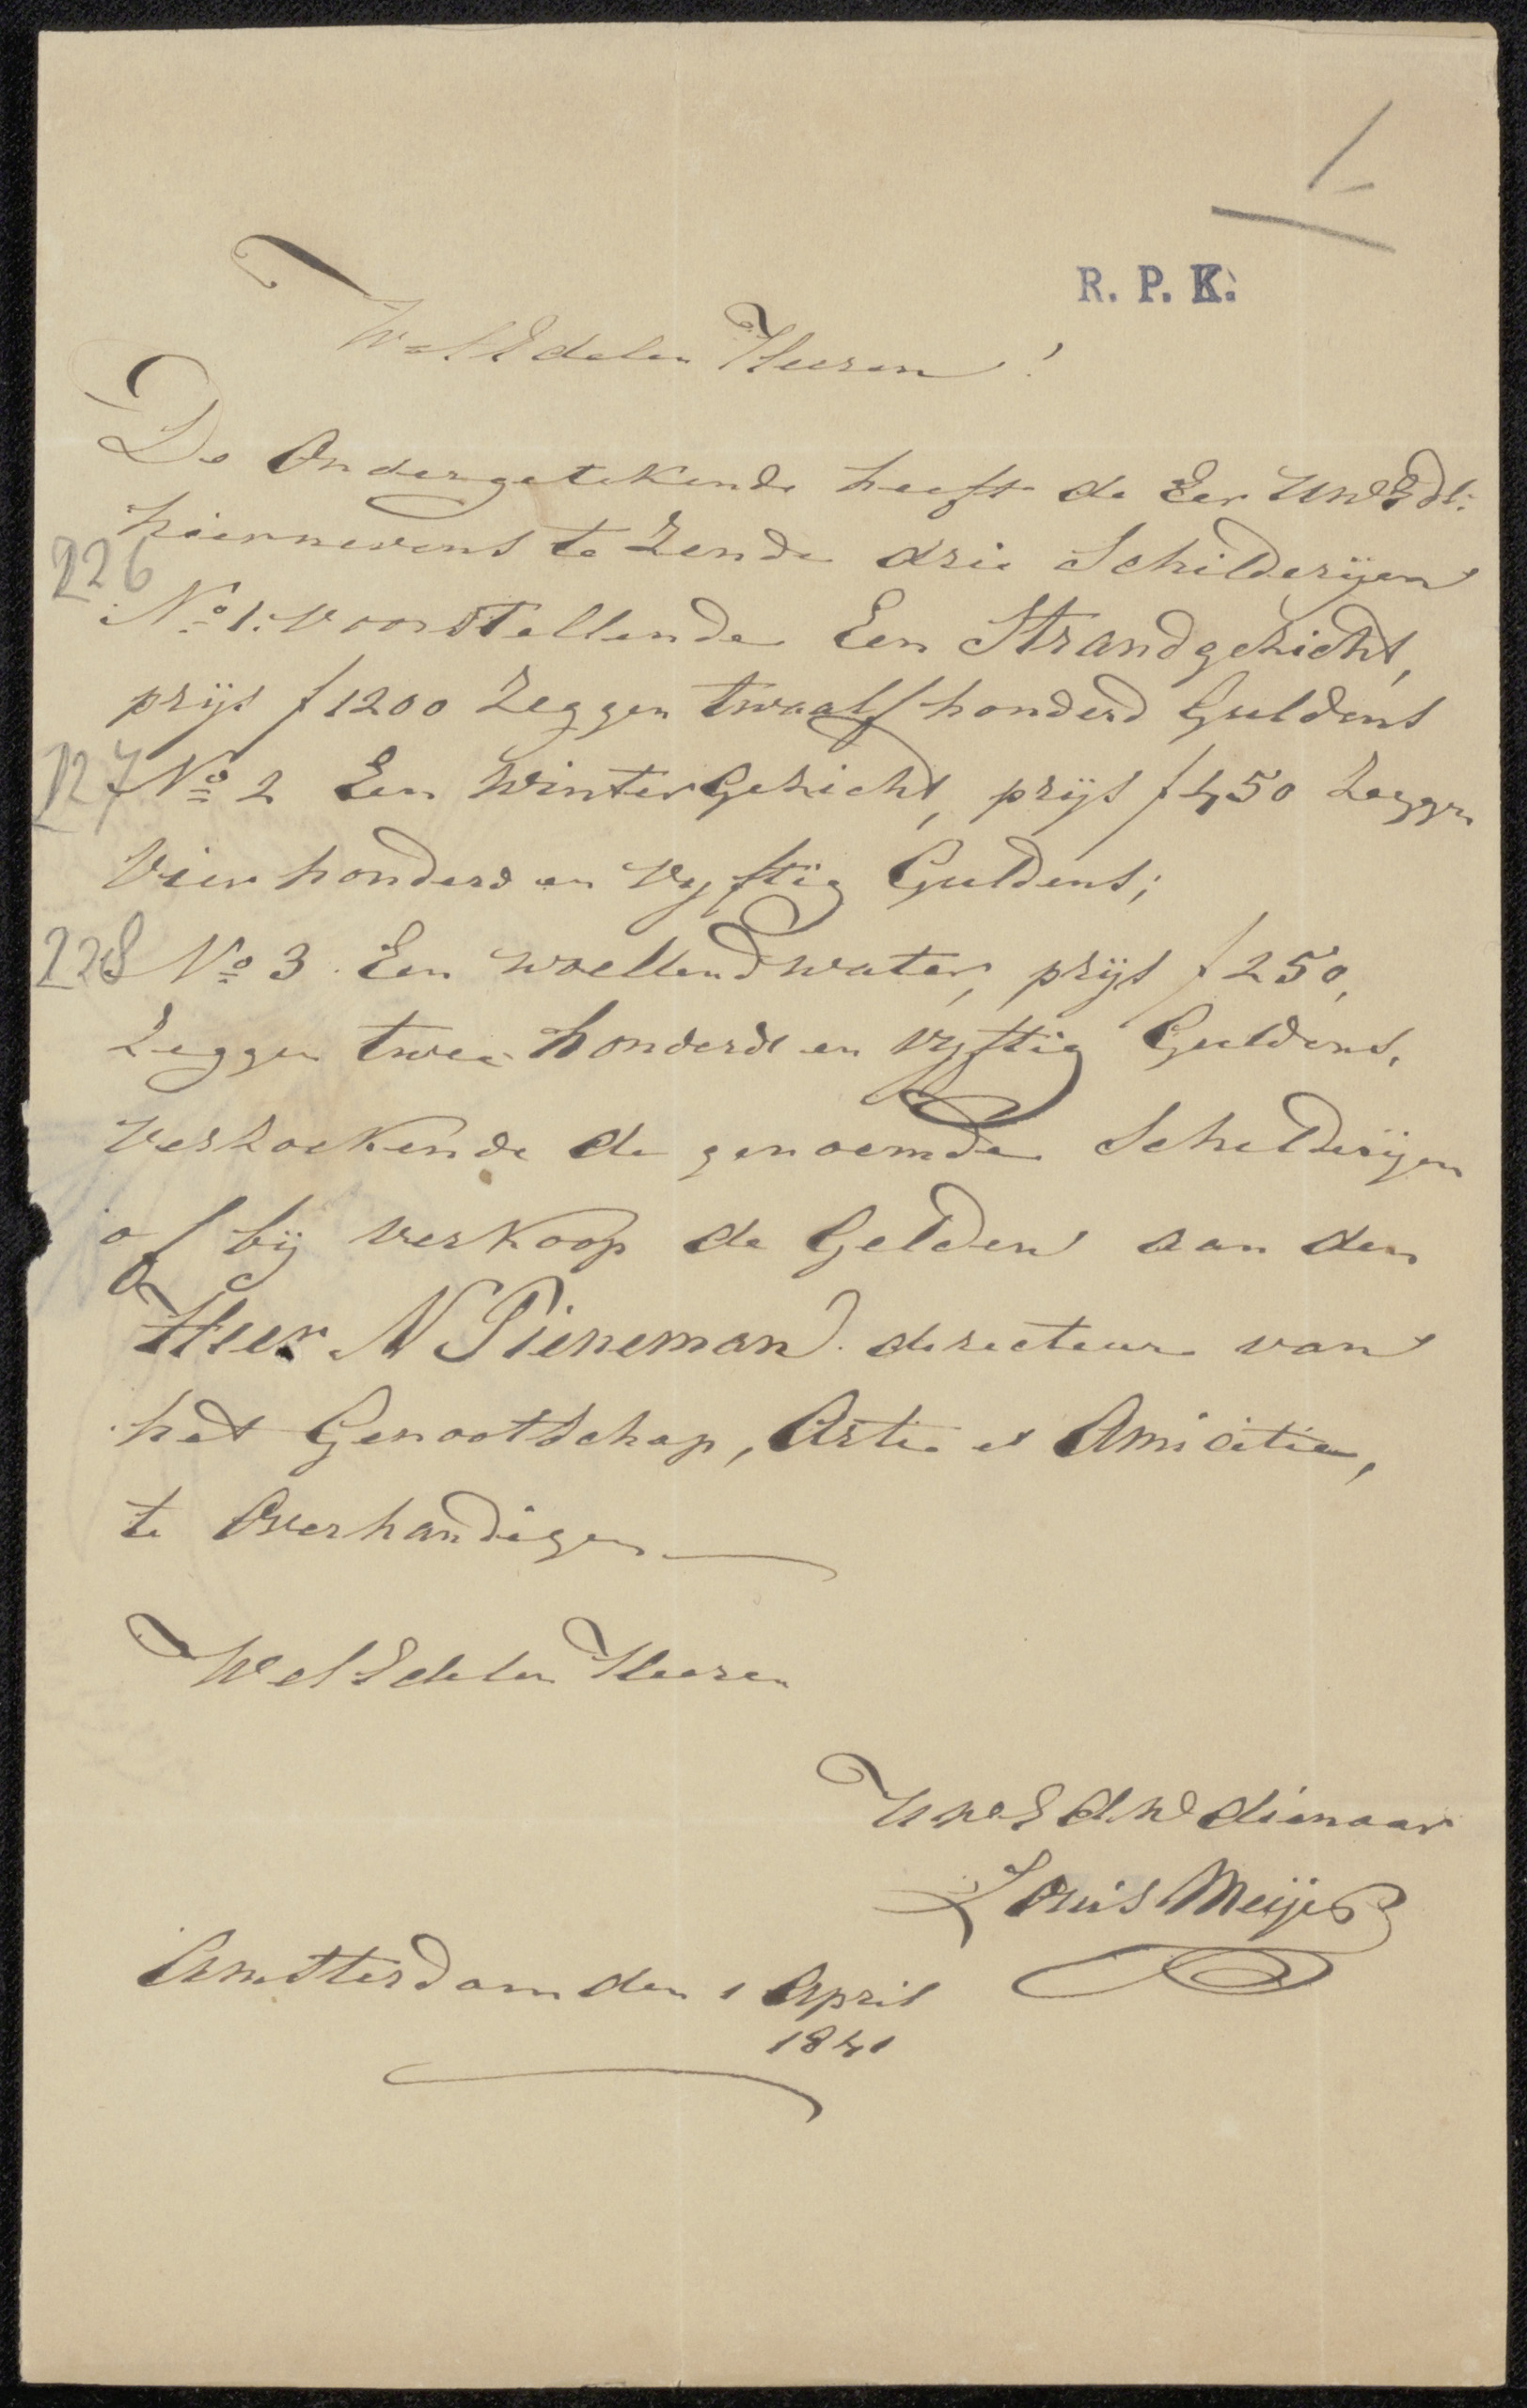 1
R. P. K.
WelEdelen Heeren!
De Ondergetekende heeft de Eer UwEdl:
hiernevens te Zende drie Schilderijen
226
No 1: Voorstellende Een Strandgezicht,
prijs f 1200 Zeggen twaalf honderd Guldens
227 No 2 Een WinterGezicht, prijs f 450 Zeggen
Vier honderd en Vyftig Guldens;
228 No 3. Een woellend water, prijs f 250,
Zeggen twee honderd en vyftig Guldens.
Verzoekende de genoemde Schilderijen
of bij verkoop de Gelden aan den
Heer N Pieneman. directeur van
het Genootschap, Artie et Amicitia,
te Overhandigen
WelEdelen Heeren
UwEdw dienaar
Louis Meijer
Amsterdam den 1 April
1841